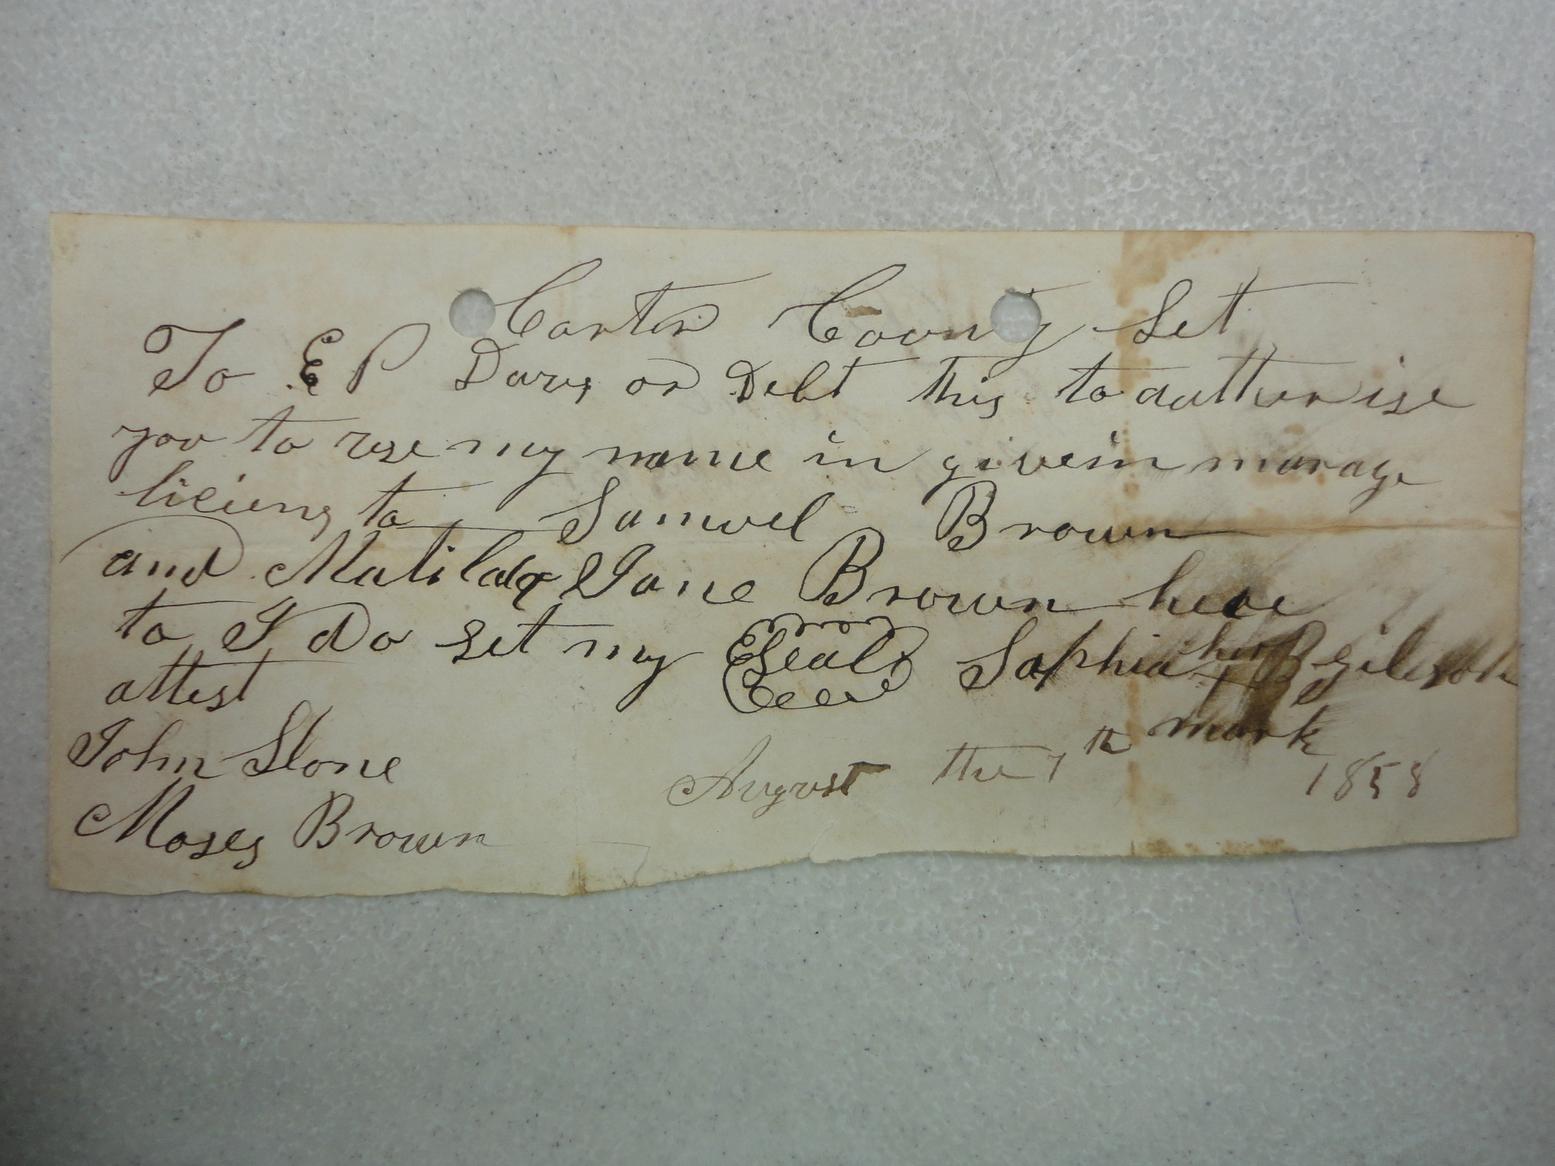 Carter Couny Set
To E P Davs or Debt this to autherise
you to use my name in givein marage
liciens to Samuel Brown
and Matilda Jane Brown here
to I do set my Seal Sophia her x B gibson
mark
attest
John Slone
Moses Brown
August the 7th 1858